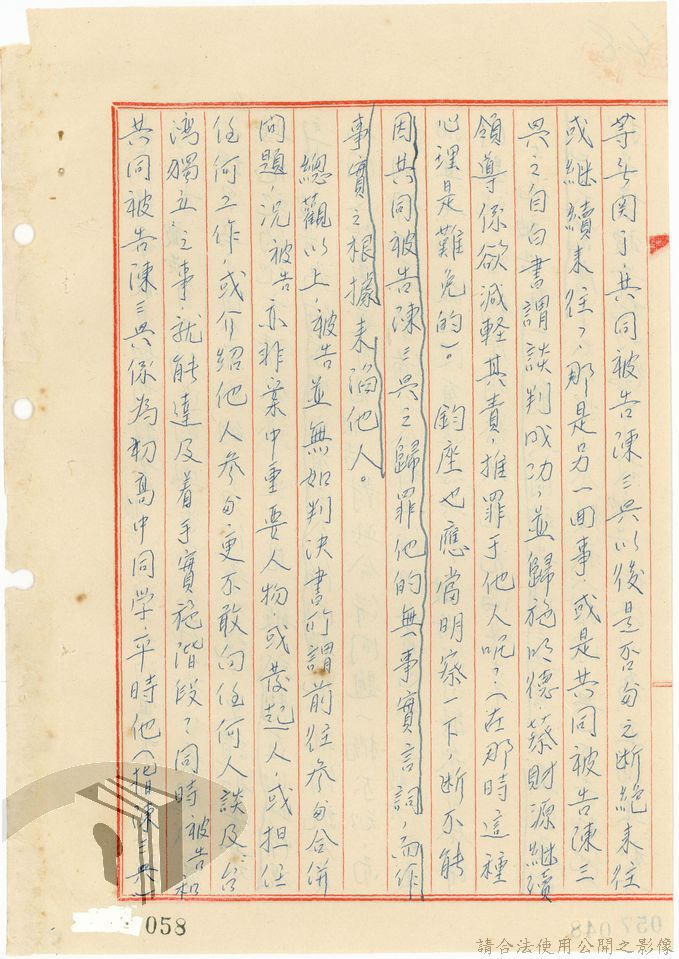 等無関了,共同被告陳三興以後是否與之断絶来往
或継續来往,那是另一囬事,或是共同被告陳三
興之自白書謂談判成功,並歸施明德、蔡財源継續
領導係欲減軽其責,推罪于他人呢?(在那時這種
心理是難免的)。鈞座也應當明察一下,断不能
因共同被告陳三興之歸罪他的無事實言詞,而作
事實之根據来陷他人。
總觀以上,被告並無如判决書所謂前往參與合併
问題,况被告亦非案中重要人物,或發起人,或担任
任何工作,或介紹他人參與,更不敢向任何人談及台
湾獨立之事,就能達及着手實施階段?同時被告和
共同被告陳三興係為初高中同学,平時他(指陳三興)
058
057 048
請合法使用公開之影像